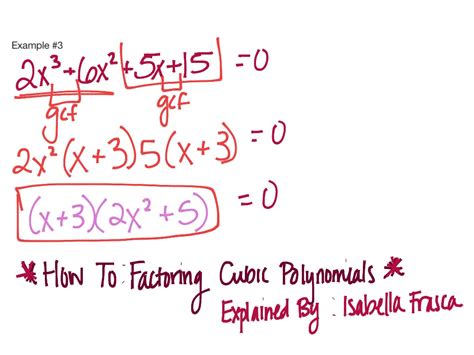 Example #3
2x³+6x²+5x+15 =0
gcf gcf
2x²(x+3)5(x+3) =0
(x+3)(2x²+5) =0
*How To: Factoring Cubic Polynomials*
Explained By: Isabella Frasca